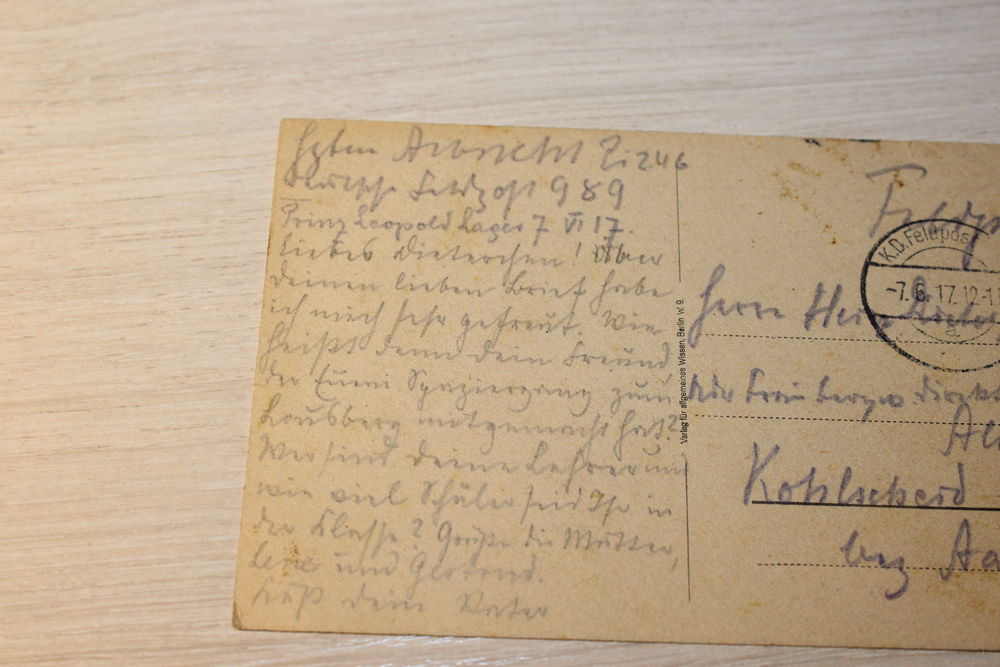 Hptm Albrecht Zi 246
Deutsche Feldpost 989
Prinz Leopold Lager 7 VI 17.
Liebes Dieterchen! Über
deinen lieben Brief habe
ich mich sehr gefreut. Wie
heißt denn dein Freund
der Euern Spaziergang zum
Lousberg mitgemacht hat?
Wer sind deine Lehrer und
wie viel Schüler seid Ihr in
der Classe? Grüße die Mutter,
und
Dein Vater
Verlag für allgemeines Wissen, Berlin W. 9.
K.D. Feldpost
-7.6.17.12-1
Herrn
Frau Bergw
Kohlscheid
bey Aa